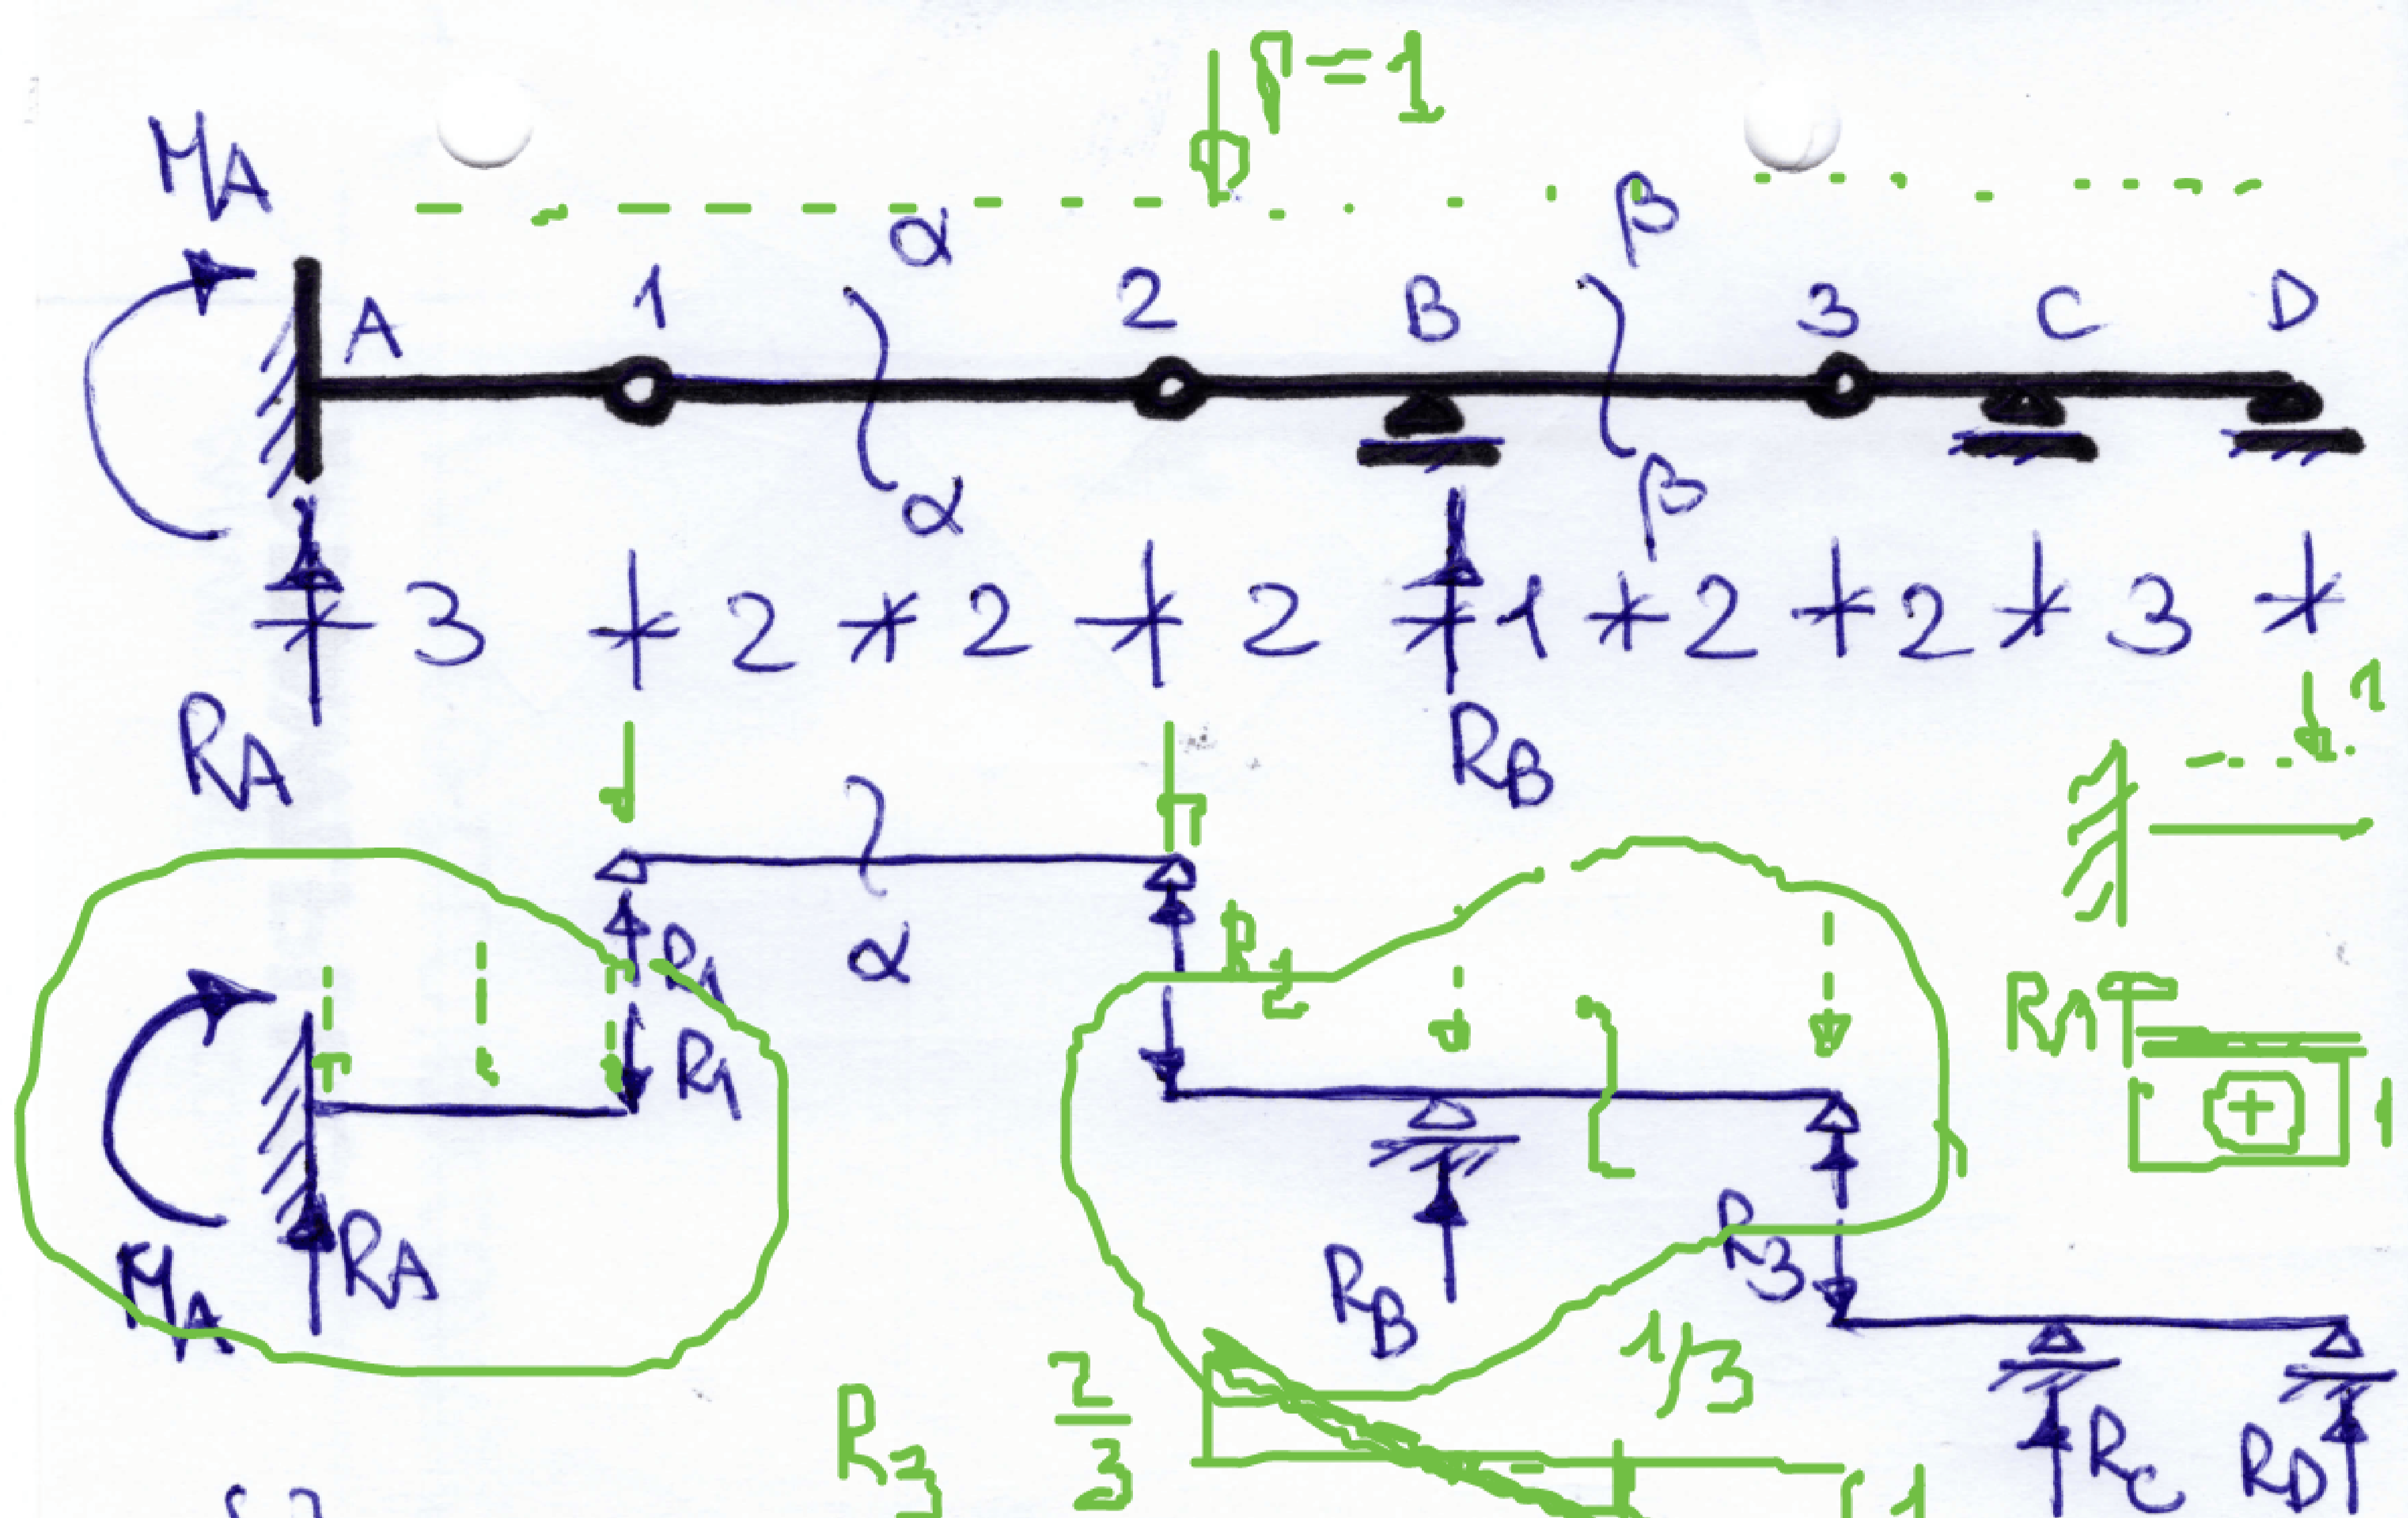 P=1
MA
α
β
A 1 2 B 3 C D
α
β
3 2 2 2 1 2 2 3
1
RA
RB
R1
α
R2
RA
1
R1
MA
RA
RB
R3
1/3
R3 2/3
1
RC
RD